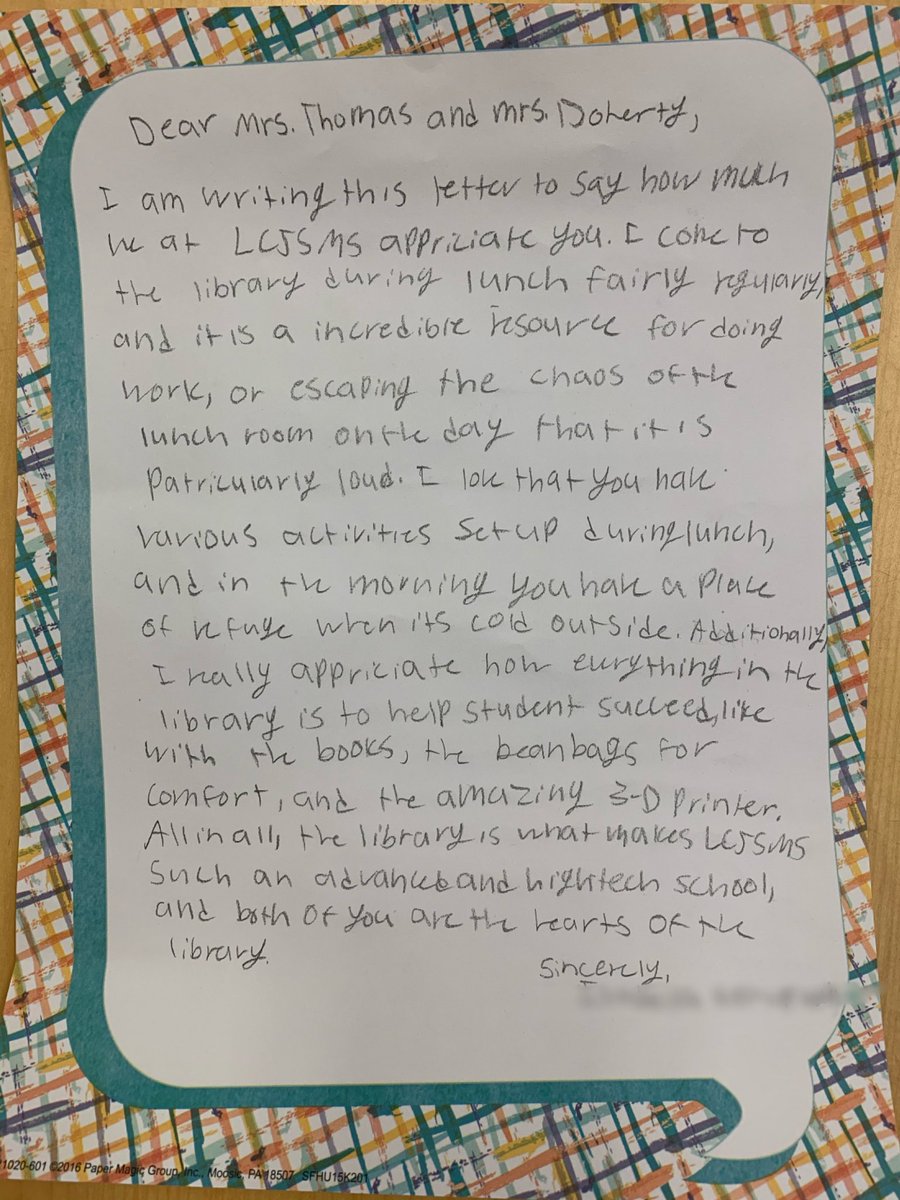 Dear Mrs. Thomas and Mrs. Doherty,
I am writing this letter to say how much
we at LCJSMS appriciate you. I come to
the library during lunch fairly regularly,
and it is a incredible resource for doing
work, or escaping the chaos of the
lunch room on the day that it is
patricularly loud. I love that you have
various activities set up during lunch,
and in the morning you have a place
of refuge when its cold outside. Additionally,
I really appriciate how everything in the
library is to help student succeed, like
with the books, the beanbags for
comfort, and the amazing 3-D printer.
All in all, the library is what makes LCJSMS
such an advance and high tech school,
and both of you are the hearts of the
library.
Sincerely,
1020-601 ©2016 Paper Magic Group, Inc., Moosic, PA 18507 SFHU15K201